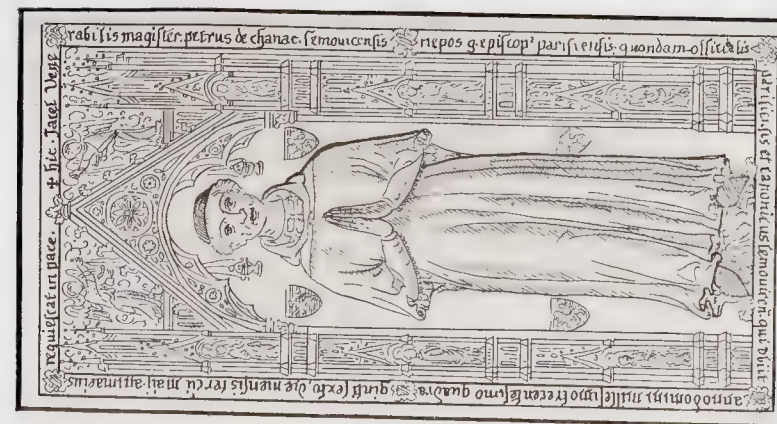 ✝ hic . Jacet Vene
rabilis magister . petrus de chanac . lemovicensis nepos g . episcop⁹ parisiensis . quondam officialis
parisiensis et canonicus lemovicen . qui obiit
anno domini millesimo trecentesimo quadra sexto die mensis maij . animaeius
requiescat in pace .